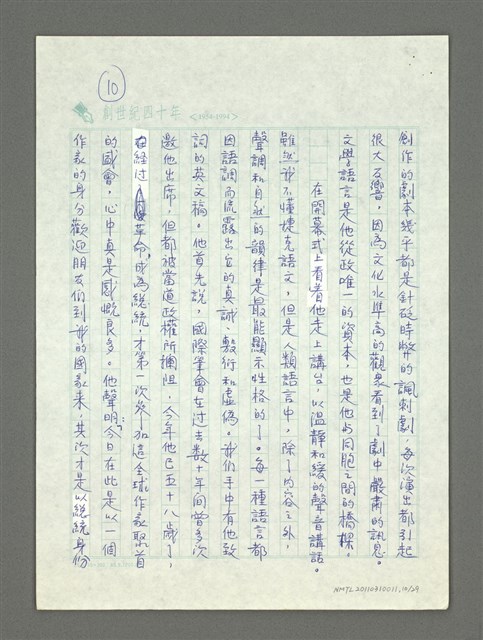 10
創世紀四十年 <1954-1994>
創作的劇本幾乎都是針砭時弊的諷刺劇，每次演出都引起
很大反響，因為文化水準高的觀眾看到了劇中嚴肅的訊息。
文學語言是他從政唯一的資本，也是他與同胞之間的橋樑。
在開幕式上看着他走上講台，以溫靜和緩的聲音講話。
雖然我不懂捷克語文，但是人類語言中，除了內容之外，
聲調和自然的韻律是最能顯示性格的了。每一種語言都
因語調而流露出它的真誠、敷衍和虛偽。我們手中有他致
詞的英文稿。他首先說，國際筆會在過去數十年間曾多次
邀他出席，但都被當道政權所攔阻，今年他已五十八歲了，
在經過革命，成為總統，才第一次參加這全球作家聚首
的盛會，心中真是感慨良多。他聲明：今日在此是以一個
作家的身分歡迎朋友們到我的國家來，其次才是以總統身份
NMTL20110310011, 10/29